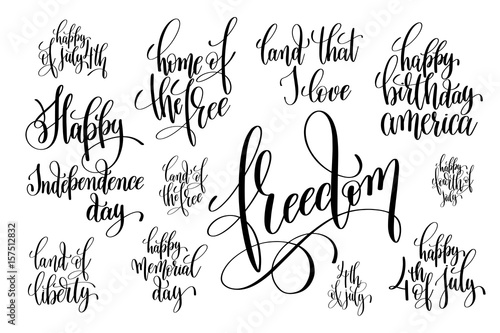 happy
of July 4th
home of
the free
land that
I love
happy
birthday
america
Happy
Independence
day
land of
the free
freedom
happy
fourth of
july
land of
liberty
happy
memorial
day
4th
of july
happy
4th of July
157512832